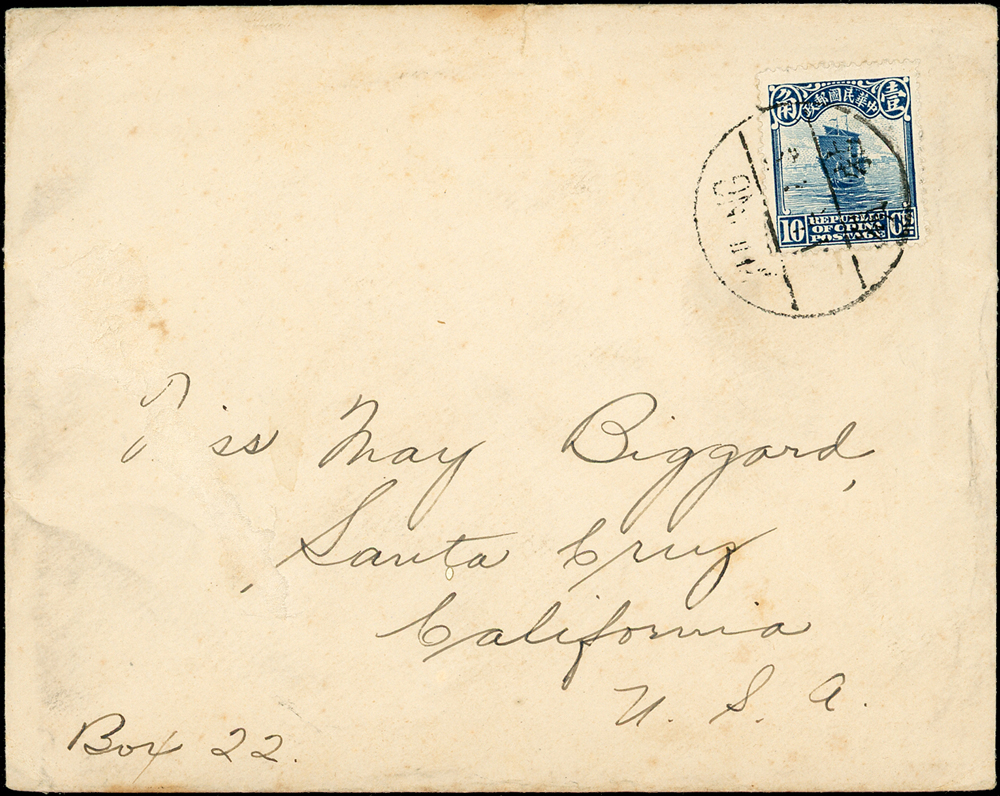 角 中華民國郵政 壹
10 REPUBLIC
OF CHINA
POSTAGE
Miss May Biggard,
Santa Cruz
California
U. S. A.
Box 22.